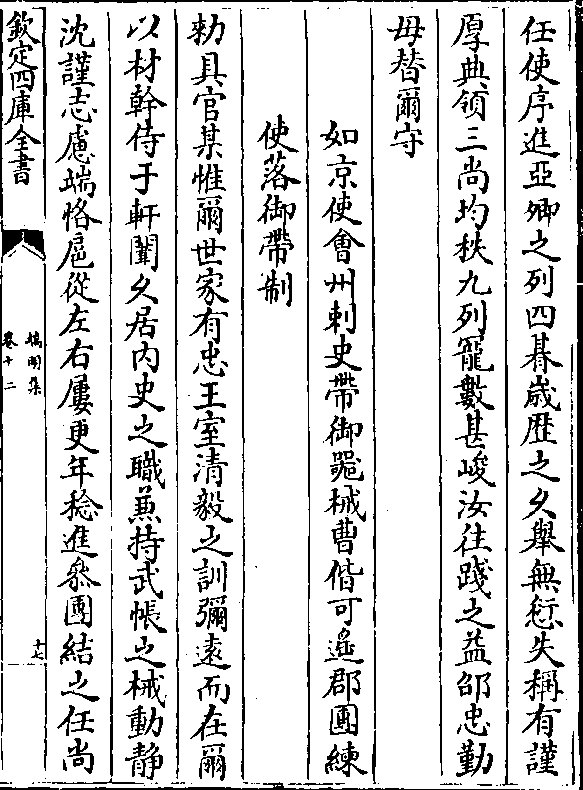 任使序進亞卿之列四朞歲歴之久舉無愆失稱有謹
厚典領三尚均秩九列寵數甚峻汝往踐之益卲忠勤
毋替爾守
如京使會州刺史帶御噐械曹偕可遥郡團練
使落御帶制
勅具官某惟爾世家有忠王室清毅之訓彌遠而在爾
以材幹侍于軒闈久居内史之職兼持武帳之械動靜
沈謹志慮端恪扈從左右屢更年稔進叅團結之任尚
欽定四庫全書
卷十二
十七